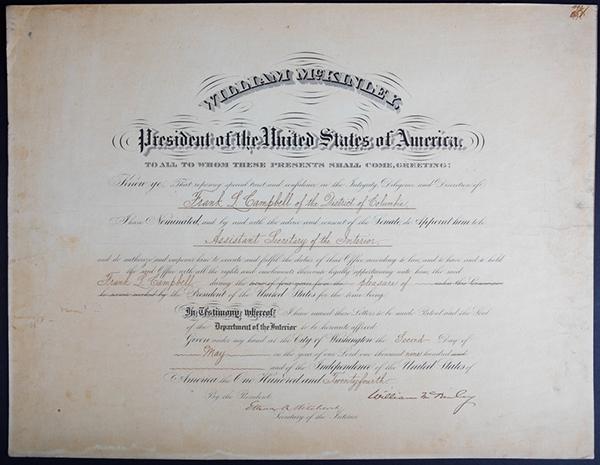 WILLIAM McKINLEY,
President of the United States of America,
TO ALL TO WHOM THESE PRESENTS SHALL COME, GREETING:
Know ye, That reposing special trust and confidence in the Integrity, Diligence and Discretion of
Frank L Campbell of the District of Columbia
I have Nominated, and by and with the advice and consent of the Senate do Appoint him to be
Assistant Secretary of the Interior
and do authorize and empower him to execute and fulfil the duties of this Office according to law, and to have and to hold
the said Office with all the rights and emoluments thereunto legally appertaining unto him, the said
Frank L Campbell, during the term of four years from the pleasure of
the President of the United States for the time being.
In Testimony whereof I have caused these Letters to be made Patent and the Seal
of the Department of the Interior to be hereunto affixed
Given under my hand at the City of Washington the Second Day of
May in the year of our Lord one thousand nine hundred
and of the Independence of the United States of
America the One Hundred and Twenty fourth
By the President:
William McKinley
Secretary of the Interior